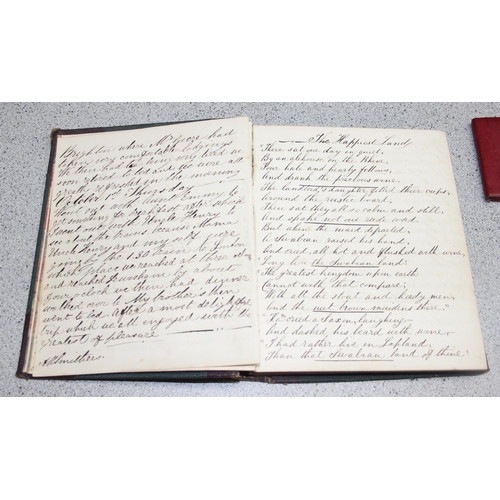 Brighton where Mr Moore had
taken very comfortable lodgings
We then had tea, being very tired we
soon retired to bed and we were all
greatly refreshed in the morning
October 1st Thursday
went out with Aunt Emmy to
out with Uncle Henry to
see about the trains, because Mama
Uncle Henry and myself were
going by the 1.30 train to London
which place we reached at three o'clock
and reached Evesham by about
four, and we there had dinner
and tea over to My brother's then
went to bed after a most delightful
trip which we all enjoyed with the
greatest of pleasure
Smithers.
The Happiest Land
There sat one day in quiet,
By an alehouse on the Rhine,
Four hale and hearty fellows,
And drank the precious wine.
The landlord's daughter filled their cups,
Around the rustic board,
Then sat they all so calm and still,
And spake not one rude word.
But when the maid departed,
A Swabian raised his hand,
And cried, all hot and flushed with wine,
"Long live the Swabian land!
The greatest kingdom upon earth
Cannot with that compare;
With all the stout and hardy men
And the nut brown maidens there."
"Ha" cried a Saxon, laughing—
And dashed his beard with wine,—
"I had rather live in Lapland,
Than that Swabian land of thine!